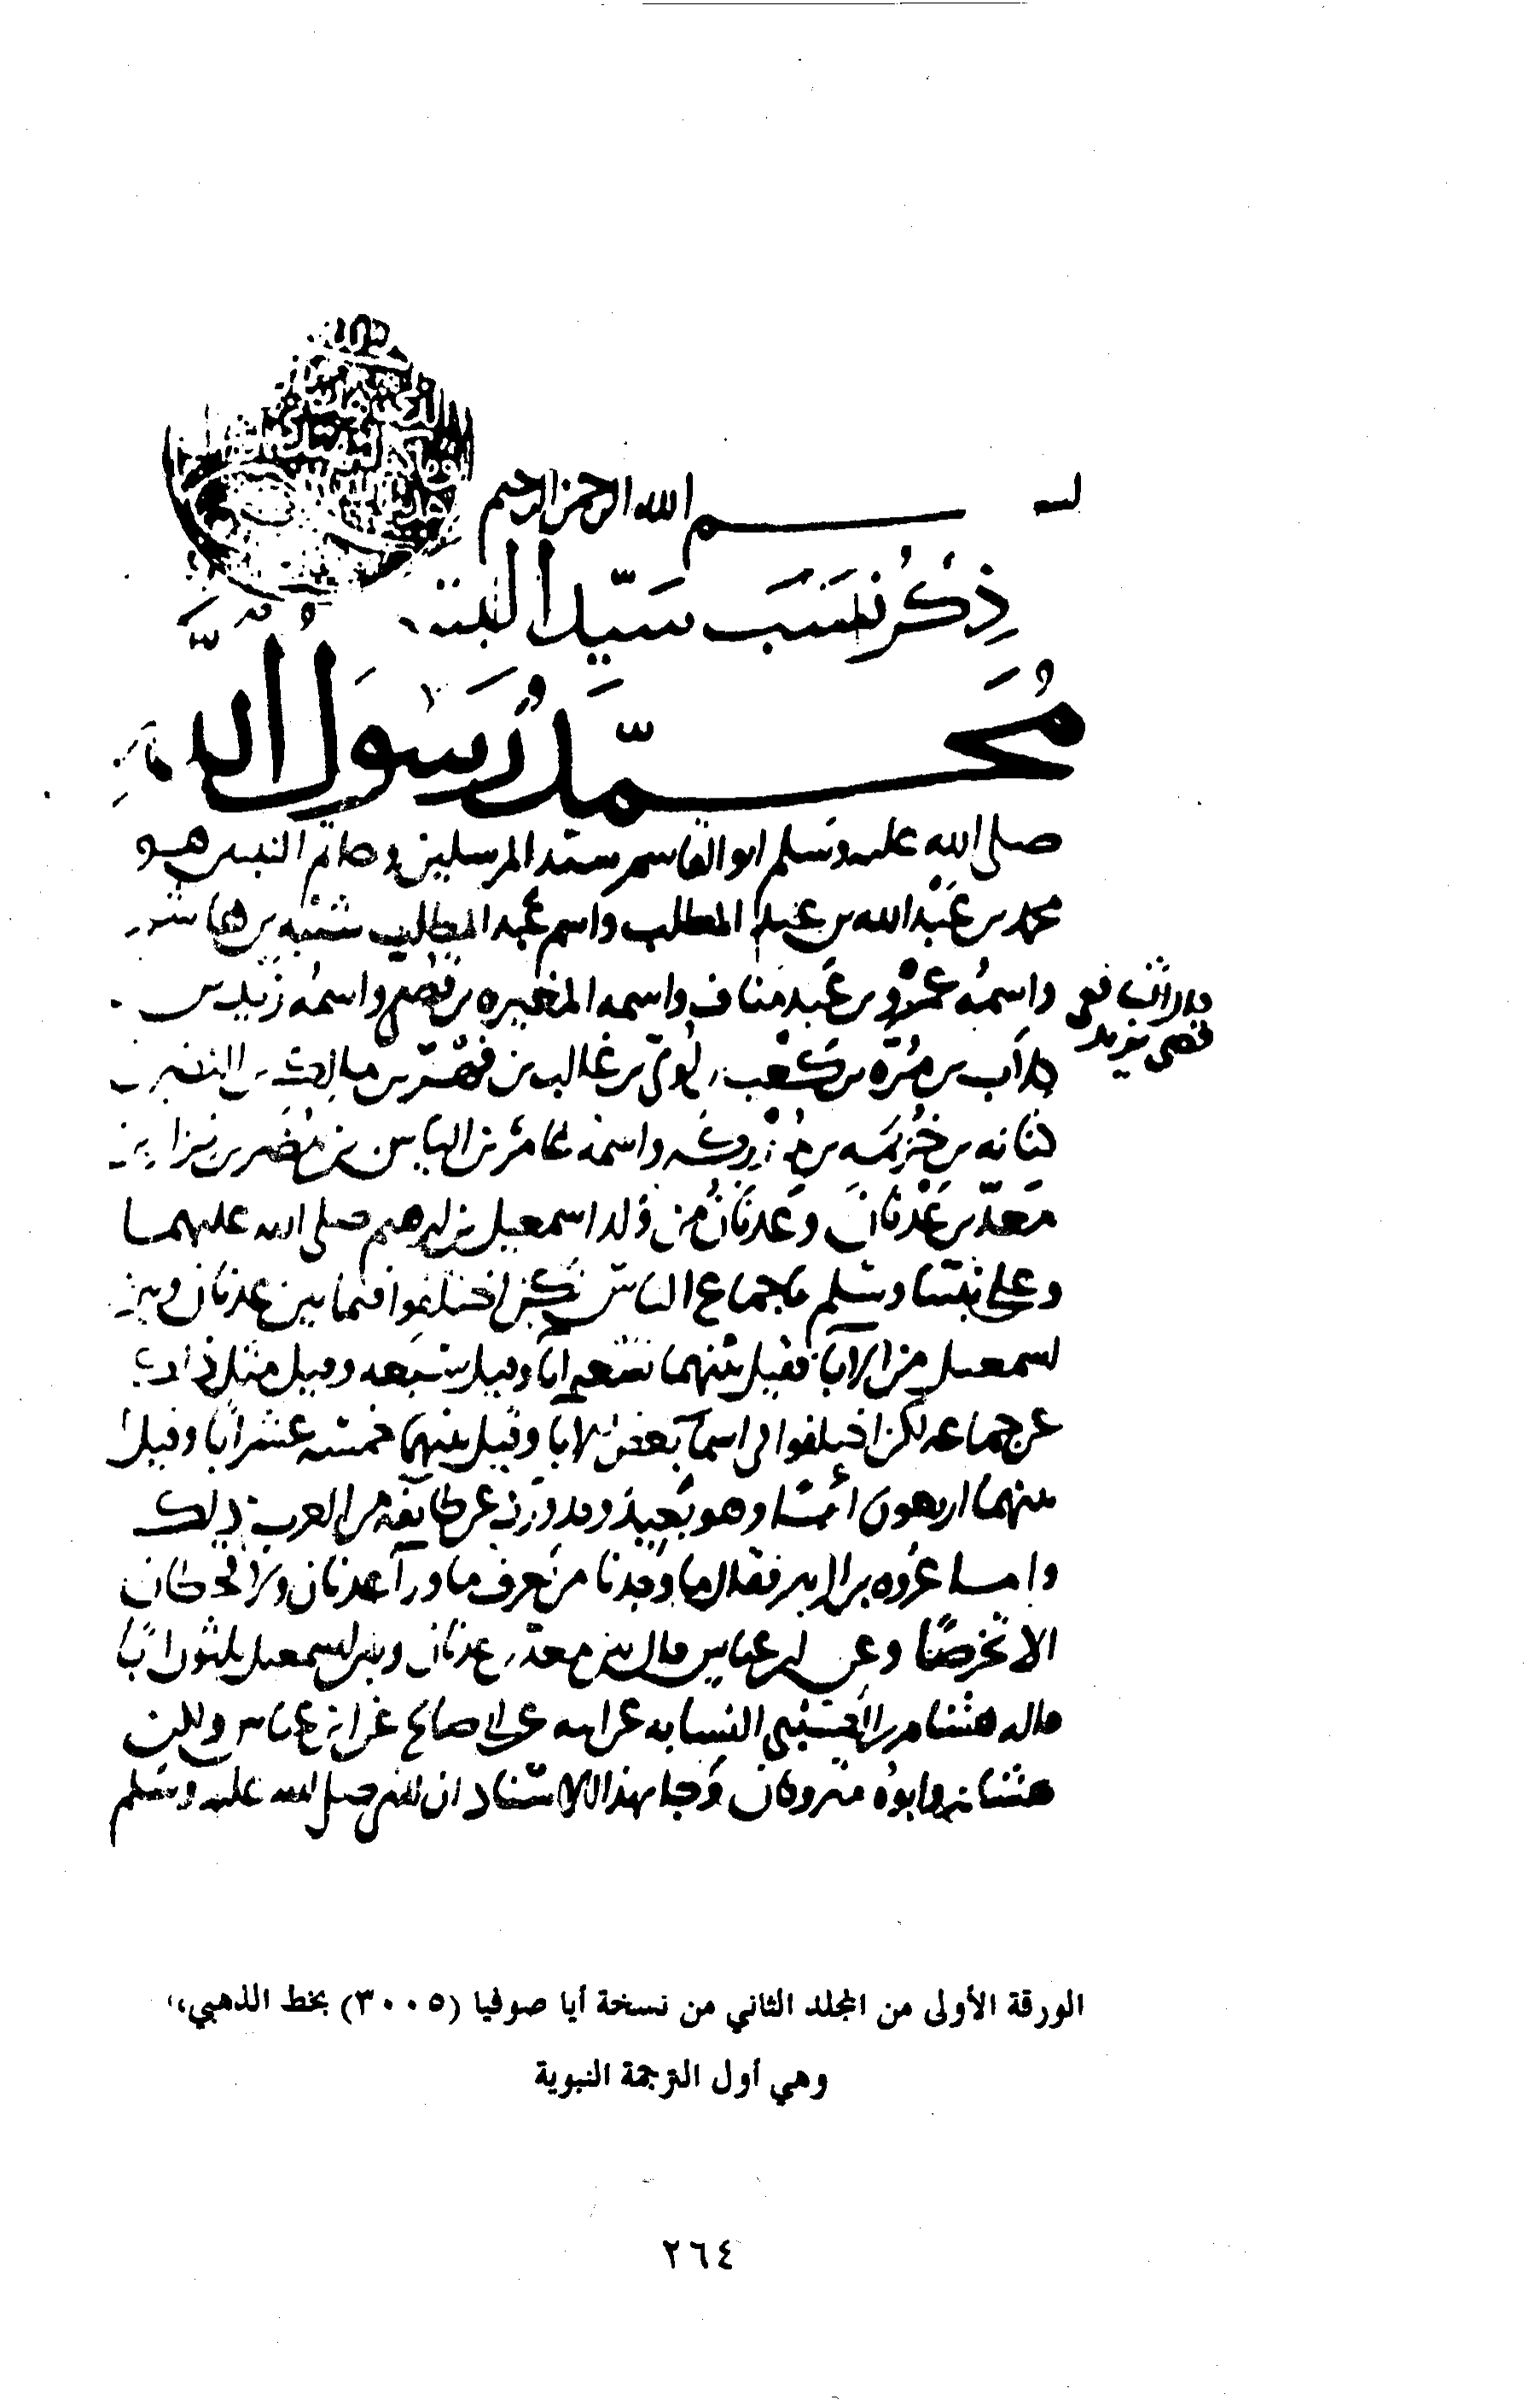 بسم الله الرحمن الرحيم
ذِكْرُ نَسَب سَيِّد البشر
مُحَمَّدٌ رَسُولُ اللهِ
صلى الله عليه وسلم ابو القاسم سيد المرسلين وخاتم النبيين هو
محمد بن عَبْد الله بن عبد المطلب واسم عبد المطلب شيبه بن هاشم
واسمُه عَمْرو بن عَبد مَناف واسمه المغيره بن قُصي واسمُه زيد بن
كلاب بن مُرّه بن كَعْب بن لُؤي بن غالب بن فهر بن مالك بن النضر بن
كنانه بن خُزَيمَه بن مدركه واسمه عامر بن الياس بن مُضَر بن نزار بن
مَعَدّ بن عَدْنَان وعَدنَانُ من وَلد اسمعيل بن ابرهيم صلى الله عليهما
وعلى نبينا وسلم باجماع الناس لكن اختلفوا فيما بين عدنان وبين
اسمعيل من الآبآ فقيل بينهما تسعة آبا وقيل سَبعه وقيل مثل ذلك
عن جماعه لكن اختلفوا في اسمآ بعض الآبا وقيل بينهما خمسه عشر ابا وقيل
بينهما اربعون ابًا وهو بَعِيد وقد وَرَد عن طايفه من العرب ذلك
وامـا عُروه بن الزبير فقال ما وَجدنا من يَعرف ما ورآ عدنان ولا قحطان
الا تخرصًا وعن ابن عباس قال بين معدّ بن عدنان وبين اسمعيل ثلثون ابًا
قاله هشام بن الكلبي النسابه عن ابيه عن ابي صالح عن ابن عباس ولكن
هشام وابوه متروكان وَجا بهذا الاسناد ان النبي صلى الله عليه وسلم
قال الشافعي
قصي يزيد
الورقة الأولى من المجلد الثاني من نسخة أيا صوفيا (٣٠٠٥) بخط الذهبي،
وهي أول الترجمة النبوية
٢٦٤